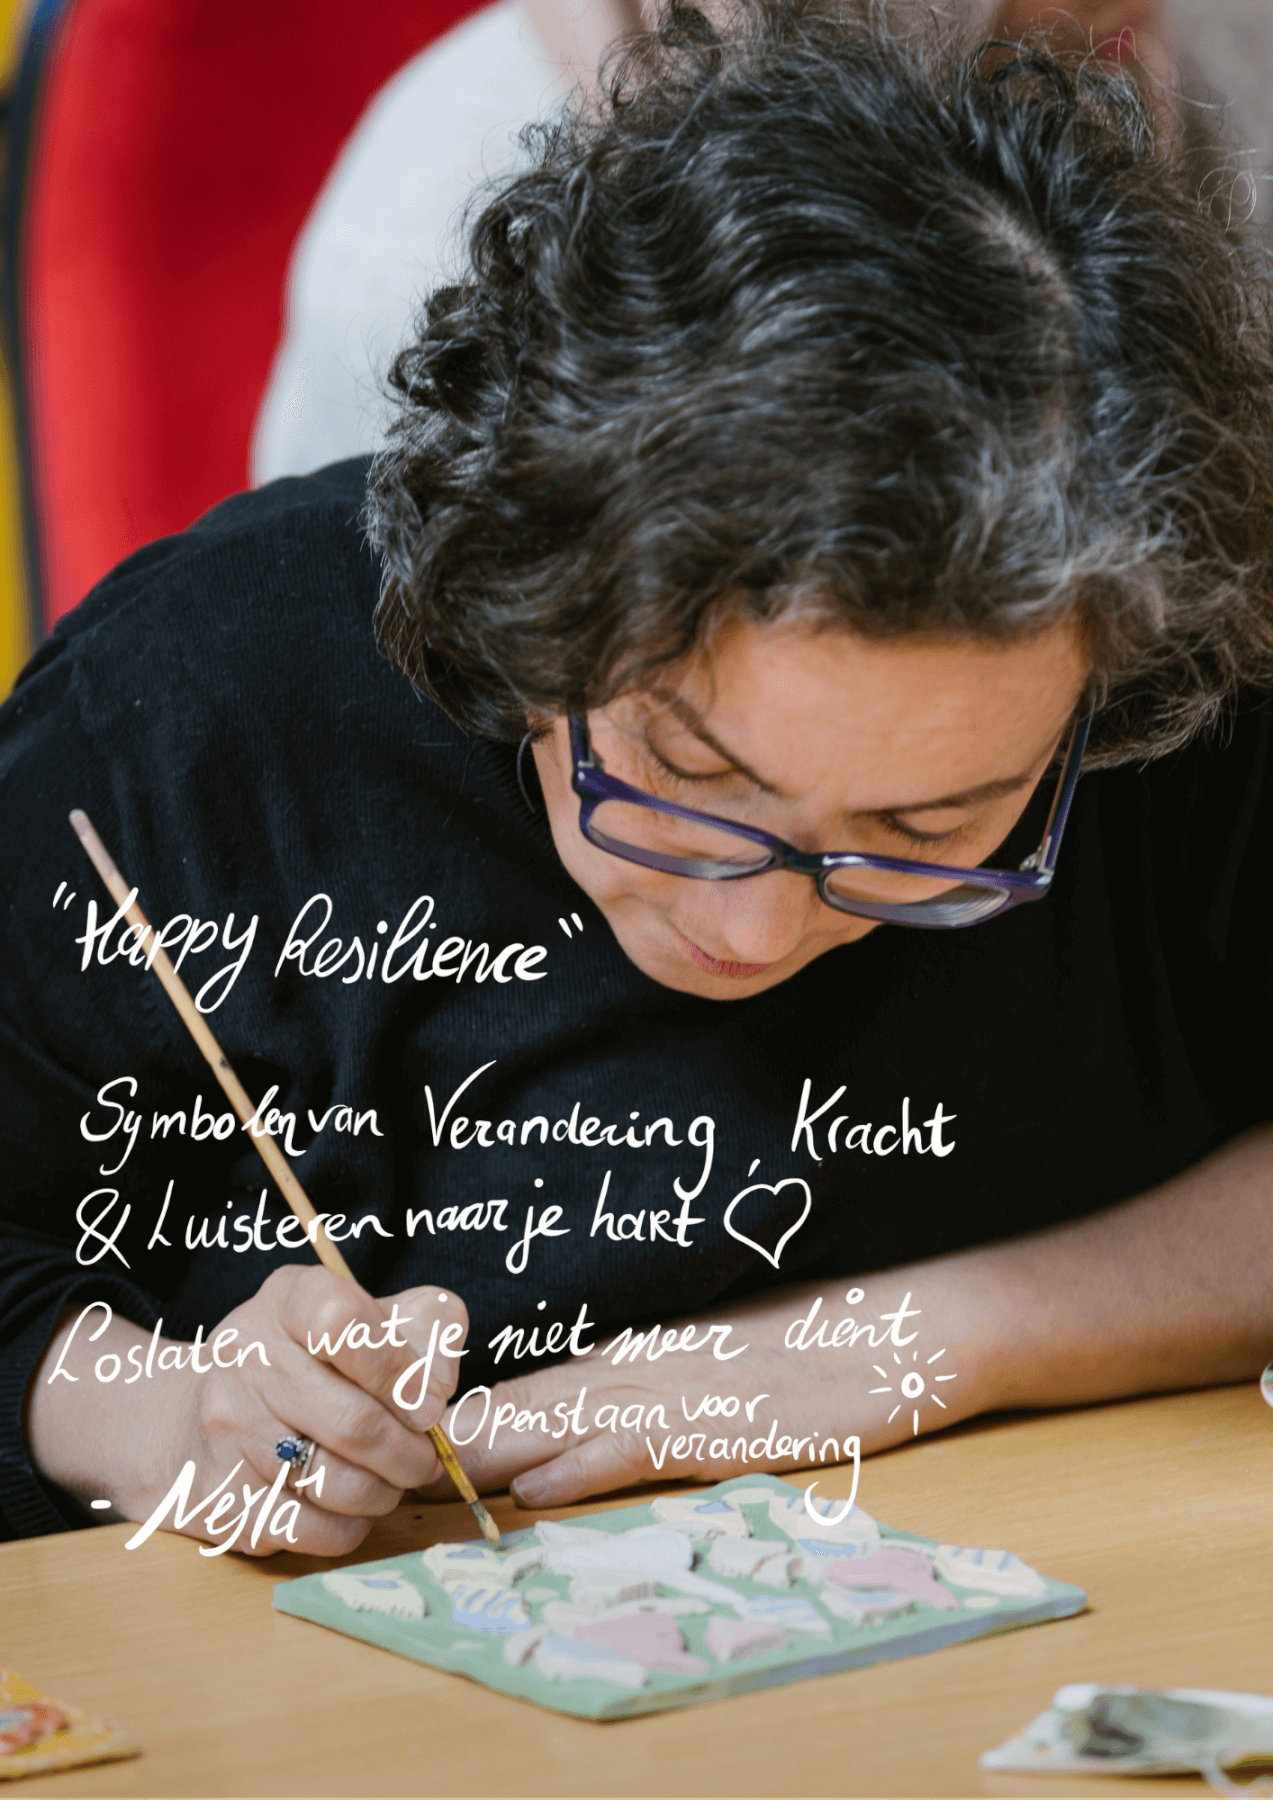 "Happy Resilience"
Symbolen van Verandering, Kracht
& Luisteren naar je hart
Loslaten wat je niet meer dient
Openstaan voor
verandering
- Nejla